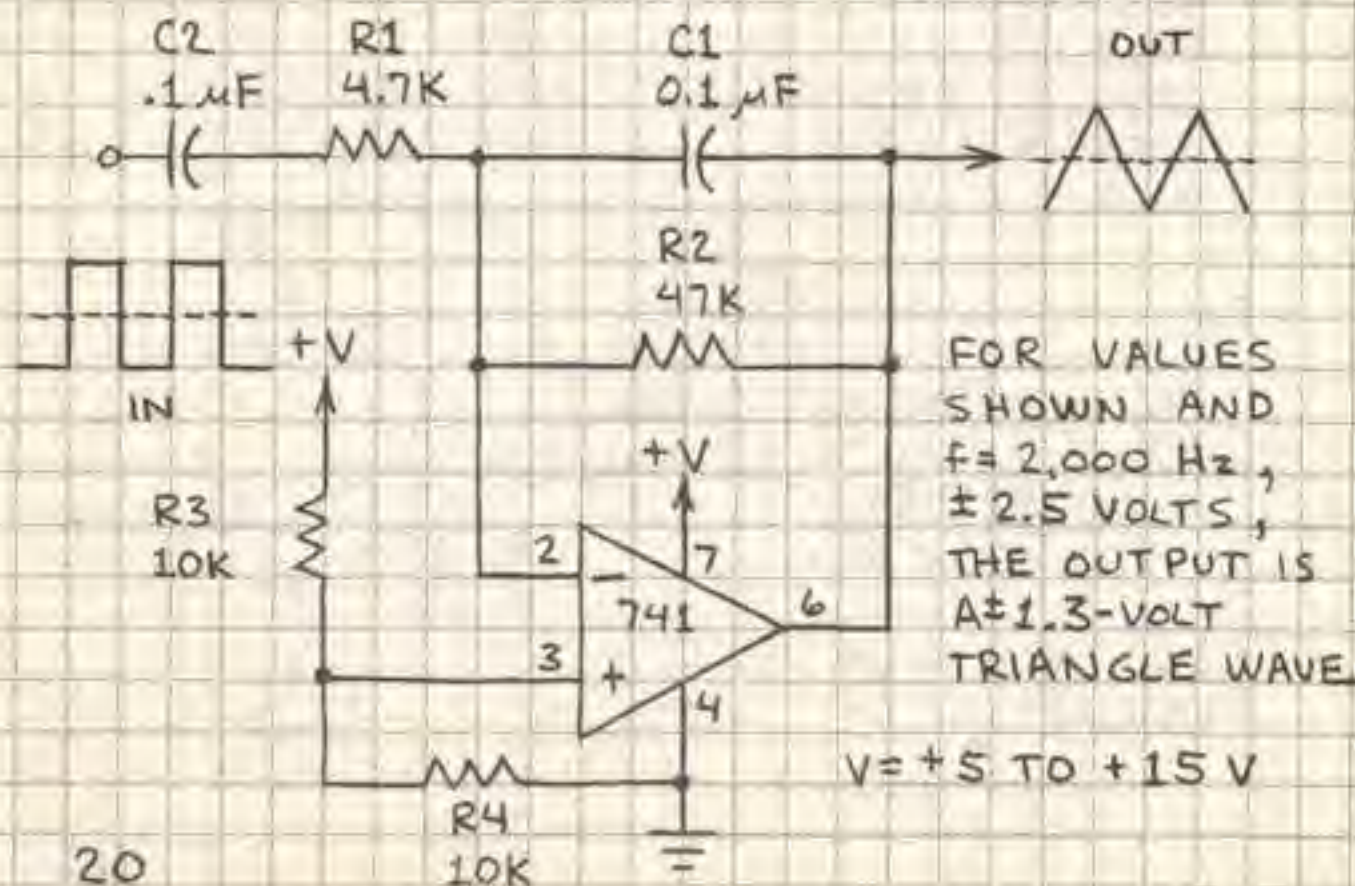 C2
.1 µF
R1
4.7K
C1
0.1 µF
OUT
IN
+V
R2
47K
R3
10K
+V
2
-
7
741
6
3
+
4
R4
10K
FOR VALUES
SHOWN AND
f= 2,000 Hz,
± 2.5 VOLTS,
THE OUTPUT IS
A±1.3-VOLT
TRIANGLE WAVE
V= +5 TO +15 V
20